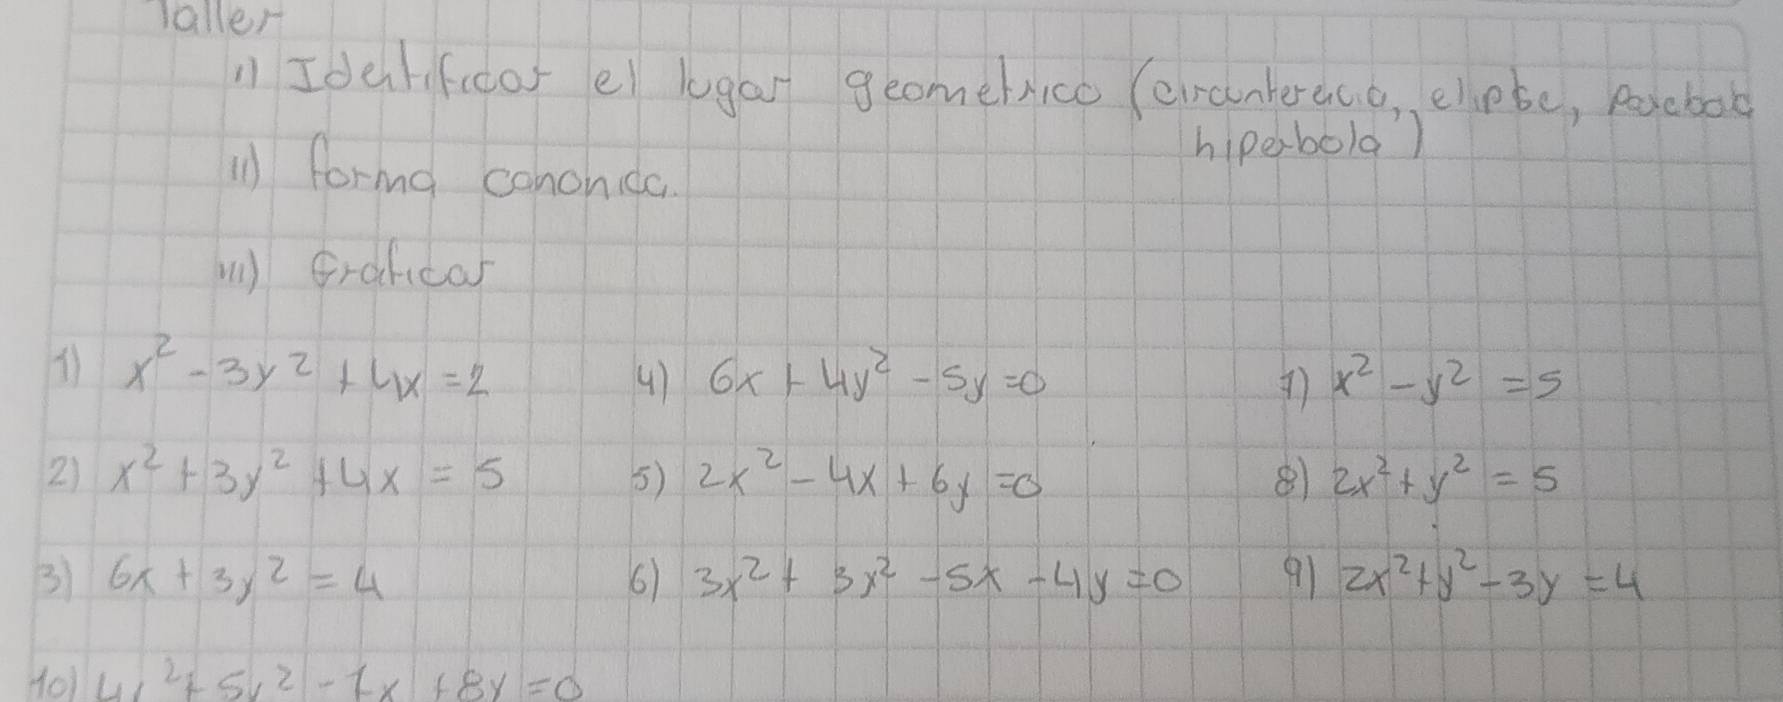 Taller
i) Identificar el lugar geometrico (circunferencia, elipse, parabola
hiperbola)
ii) forma canonica.
iii) Graficar
1) x² - 3y² + 4x = 2    4) 6x + 4y² - 5y = 0    7) x² - y² = 5
2) x² + 3y² + 4x = 5    5) 2x² - 4x + 6y = 0    8) 2x² + y² = 5
3) 6x + 3y² = 4    6) 3x² + 3y² - 5x - 4y = 0    9) 2x² + y² - 3y = 4
10) 4x² + 5y² - 7x + 8y = 0